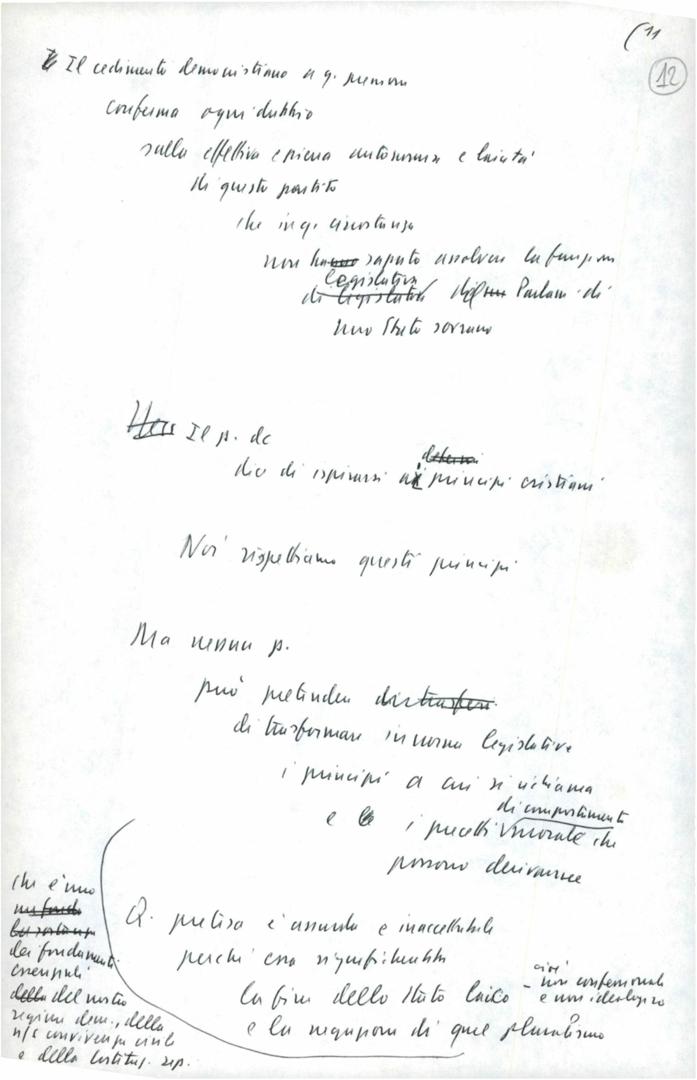 (11
12
Il cedimento democristiano a q. pressioni
conferma ogni dubbio
sulla effettiva e piena autonomia e laicità
di questo partito
che in q. circostanza
non ha saputo assolvere la funzione
legislativa
di legislativa del Parlam. di
uno Stato sovrano
Il p. dc
dice di ispirarsi ai principi cristiani
Noi rispettiamo questi principi
Ma nessun p.
può pretendere
di trasformare in norma legislativa
i principi a cui si richiama
di comportamento
e i precetti morale che
possono derivarne
Q. pretesa è assurda e inaccettabile
perché essa significherebbe
la fine dello Stato laico - cioè non confessionale
e non ideologico
e la negazione di quel pluralismo
che è uno
dei fondamenti
essenziali
della del nostro
regime dem., della
n/s convivenza civile
e della Costituz. rep.